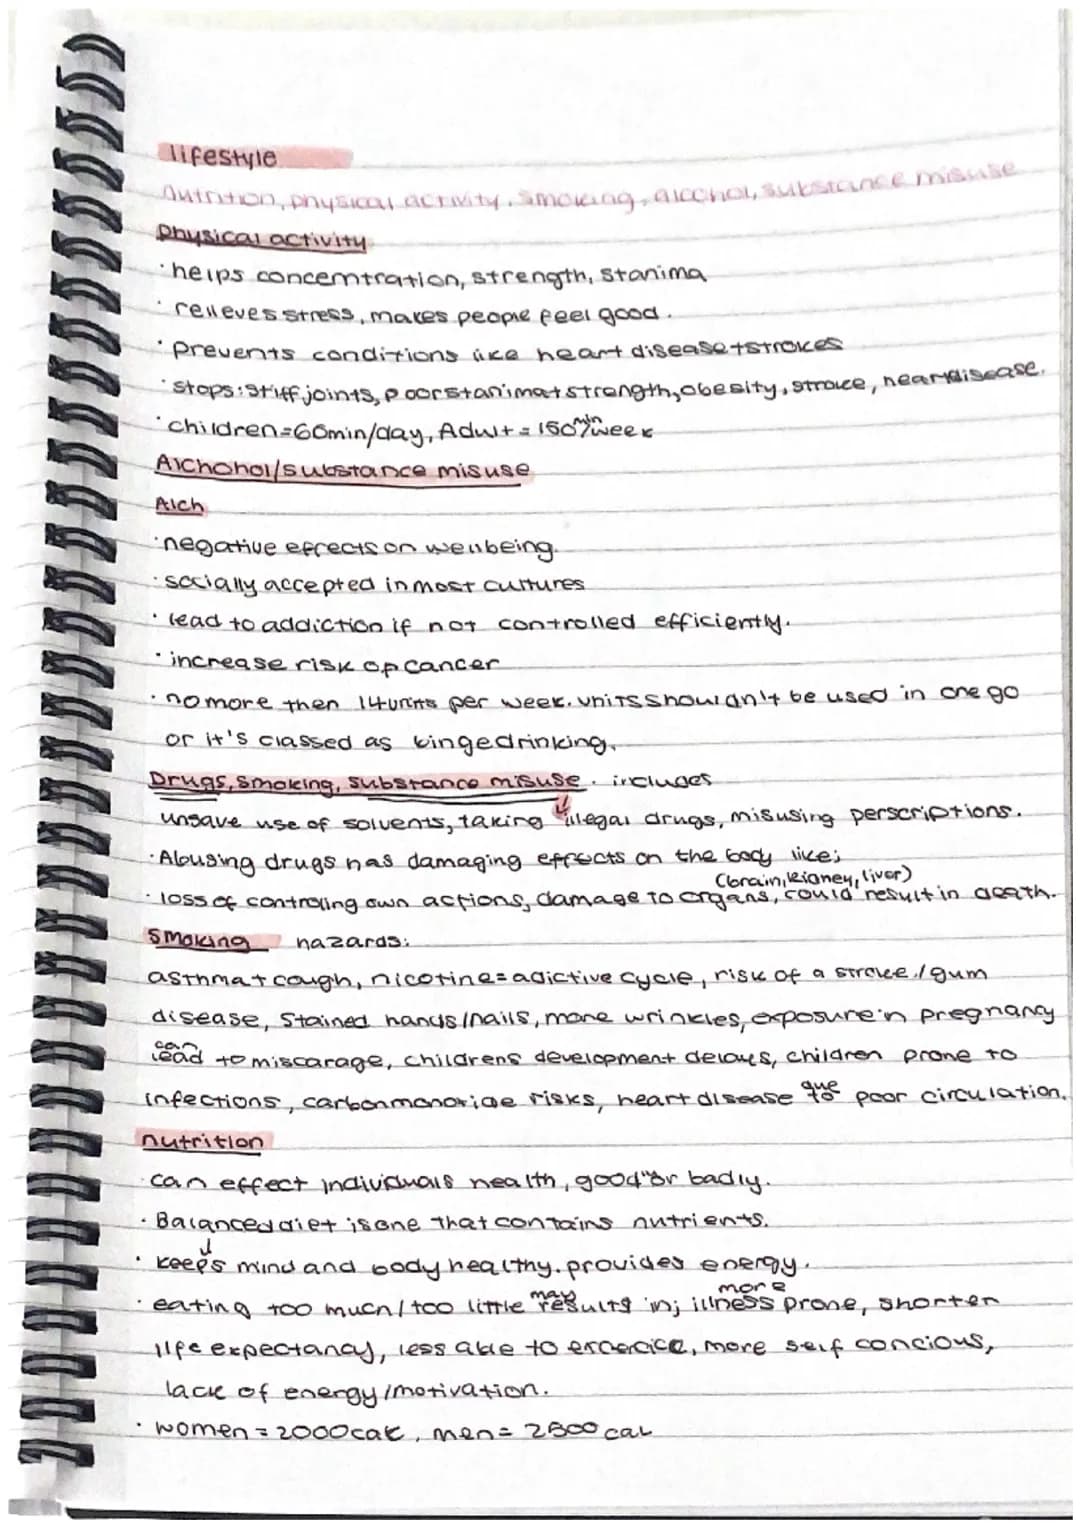 lifestyle
nutrition, physical activity, smoking, alcohol, substance misuse
physical activity
· helps concerntration, strength, stanima
· relieves stress, makes people feel good.
· prevents conditions like heart disease + strokes
· stops: stiff joints, poor stanima + strength, obesity, stroke, heart disease.
· children = 60min/day, Adult = 150min/week
Alchohol/substance misuse
Alch
· negative effects on wellbeing.
· socially accepted in most cultures
· lead to addiction if not controlled efficiently.
· increase risk of cancer
· no more then 14 units per week. units shouldn't be used in one go
or it's classed as bingedrinking.
Drugs, smoking, substance misuse. includes
unsave use of solvents, taking illegal drugs, misusing perscriptions.
· Abusing drugs has damaging effects on the body like;
(brain, kidney, liver)
· loss of controling own actions, damage to organs, could result in death.
smoking hazards:
asthma + cough, nicotine = adictive cycle, risk of a stroke/gum
disease, stained hands/nails, more wrinkles, exposure in pregnancy
can lead to miscarage, childrens development delays, children prone to
infections, carbonmonoxide risks, heart disease due to poor circulation.
nutrition
· can effect individuals health, good or badly.
· Balanced diet is one that contains nutrients.
↓
· keeps mind and body healthy. provides energy.
more
· eating too much/too little may results in; illness prone, shorter
life expectancy, less able to excercice, more self concious,
lack of energy/motivation.
· women = 2000cal, men = 2500 cal